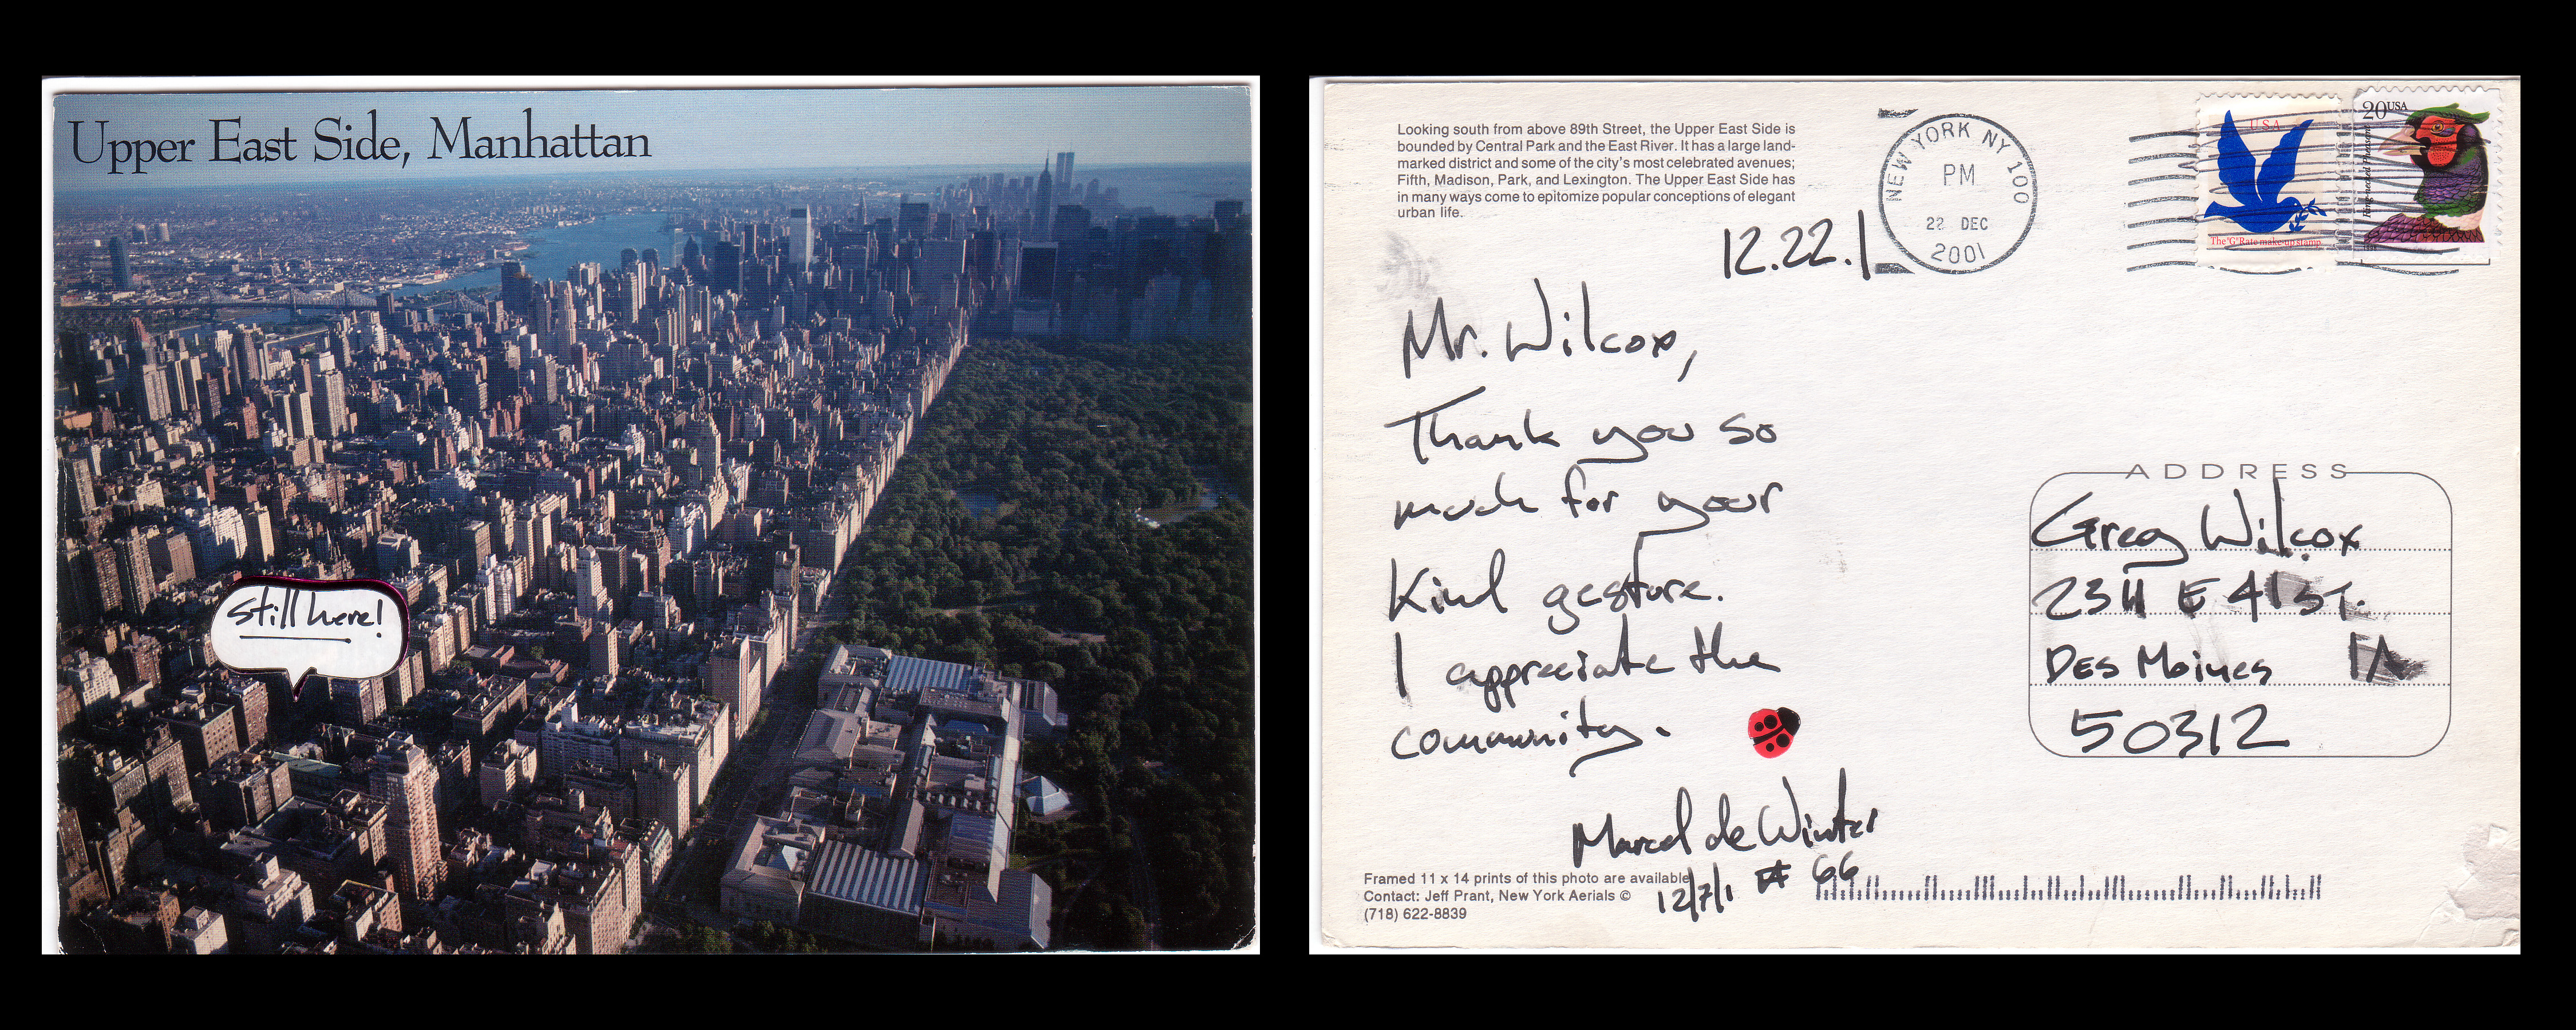 Upper East Side, Manhattan
still here!
Looking south from above 89th Street, the Upper East Side is
bounded by Central Park and the East River. It has a large land-
marked district and some of the city's most celebrated avenues;
Fifth, Madison, Park, and Lexington. The Upper East Side has
in many ways come to epitomize popular conceptions of elegant
urban life.
NEW YORK NY 100
PM
22 DEC
2001
USA
The "G" Rate make-up stamp
20USA
Ring-necked Pheasant
12.22.1
Mr. Wilcox,
Thank you so
much for your
Kind gesture.
I appreciate the
community.
Marcel de Winter
12/7/1 # 66
ADDRESS
Greg Wilcox
2311 E 41 ST.
DES Moines IA
50312
Framed 11 x 14 prints of this photo are available
Contact: Jeff Prant, New York Aerials ©
(718) 622-8839